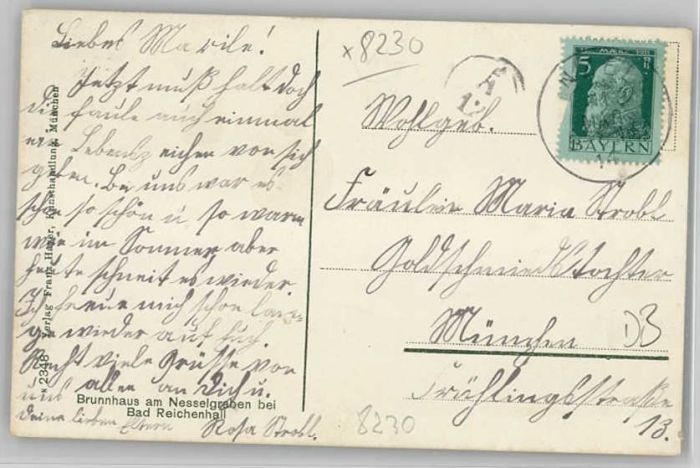 Liebes Marile!
Jetzt muß halt doch
die faule auch einmal
ein Lebenszeichen von sich
geben. Bei uns war es
schon so schön u so warm
wie im Sommer aber
heute schneit es wieder.
Ich freue mich schon lan-
ge wieder auf Euch.
Recht viele Grüsse von
uns allen an Dich u.
Deine lieben Eltern Rosa Strobl.
Brunnhaus am Nesselgraben bei
Bad Reichenhall
* 2348 Verlag Franz Hager, Kunsthandlung, München
x 8230
5
BAYERN
14
Wohlgeb.
Fräulein Maria Strobl
Goldschmiedstochter
München
DB
Frühlingsstraße
13.
8230